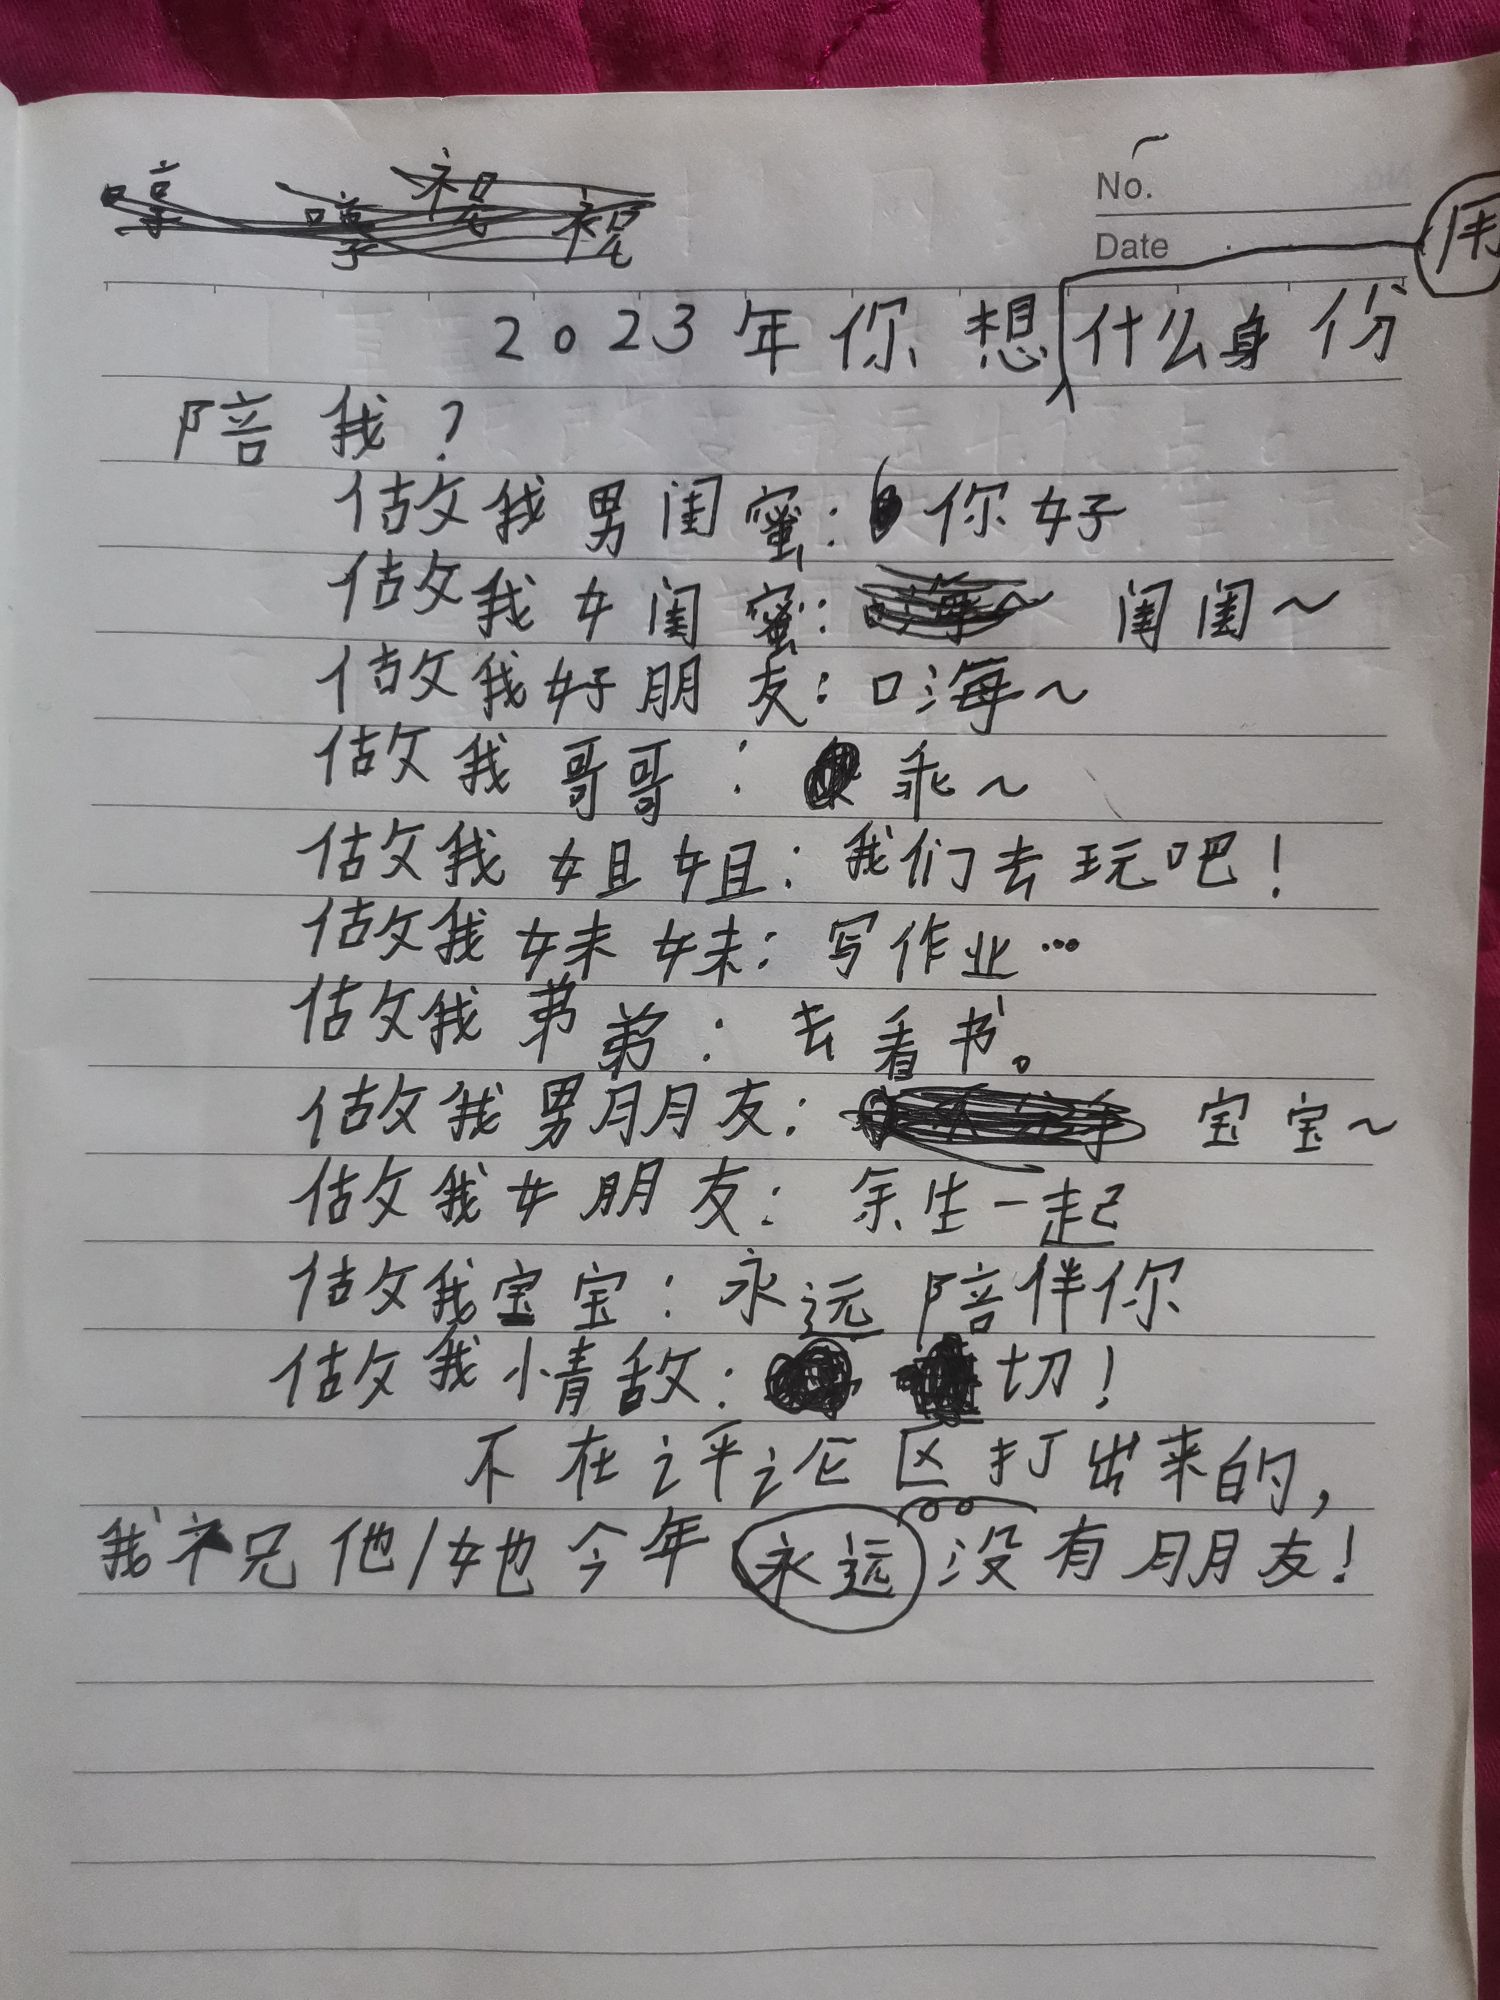 No.
Date
用
2023年你想什么身份
陪我?
做我男闺蜜:你好
做我女闺蜜:闺闺~
做我好朋友:嗨~
做我哥哥:乖~
做我姐姐:我们去玩吧!
做我妹妹:写作业…
做我弟弟:去看书。
做我男朋友:宝宝~
做我女朋友:余生一起
做我宝宝:永远陪伴你
做我情敌:切!
不在评论区打出来的,
我祝他/她今年永远没有朋友!